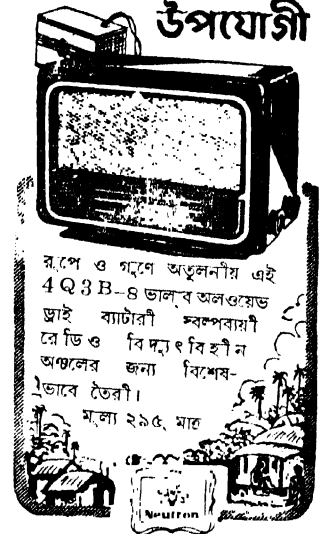 উপযোগী
রূপে ও গুণে অতুলনীয় এই
4Q3B-৪ ভাল্‌ব অলওয়েভ
ড্রাই ব্যাটারী স্বল্পব্যয়ী
রেডিও বিদ্যুৎবিহীন
অঞ্চলের জন্য বিশেষ-
ভাবে তৈরী।
মূল্য ২৯৫৲ মাত্র
Neutron